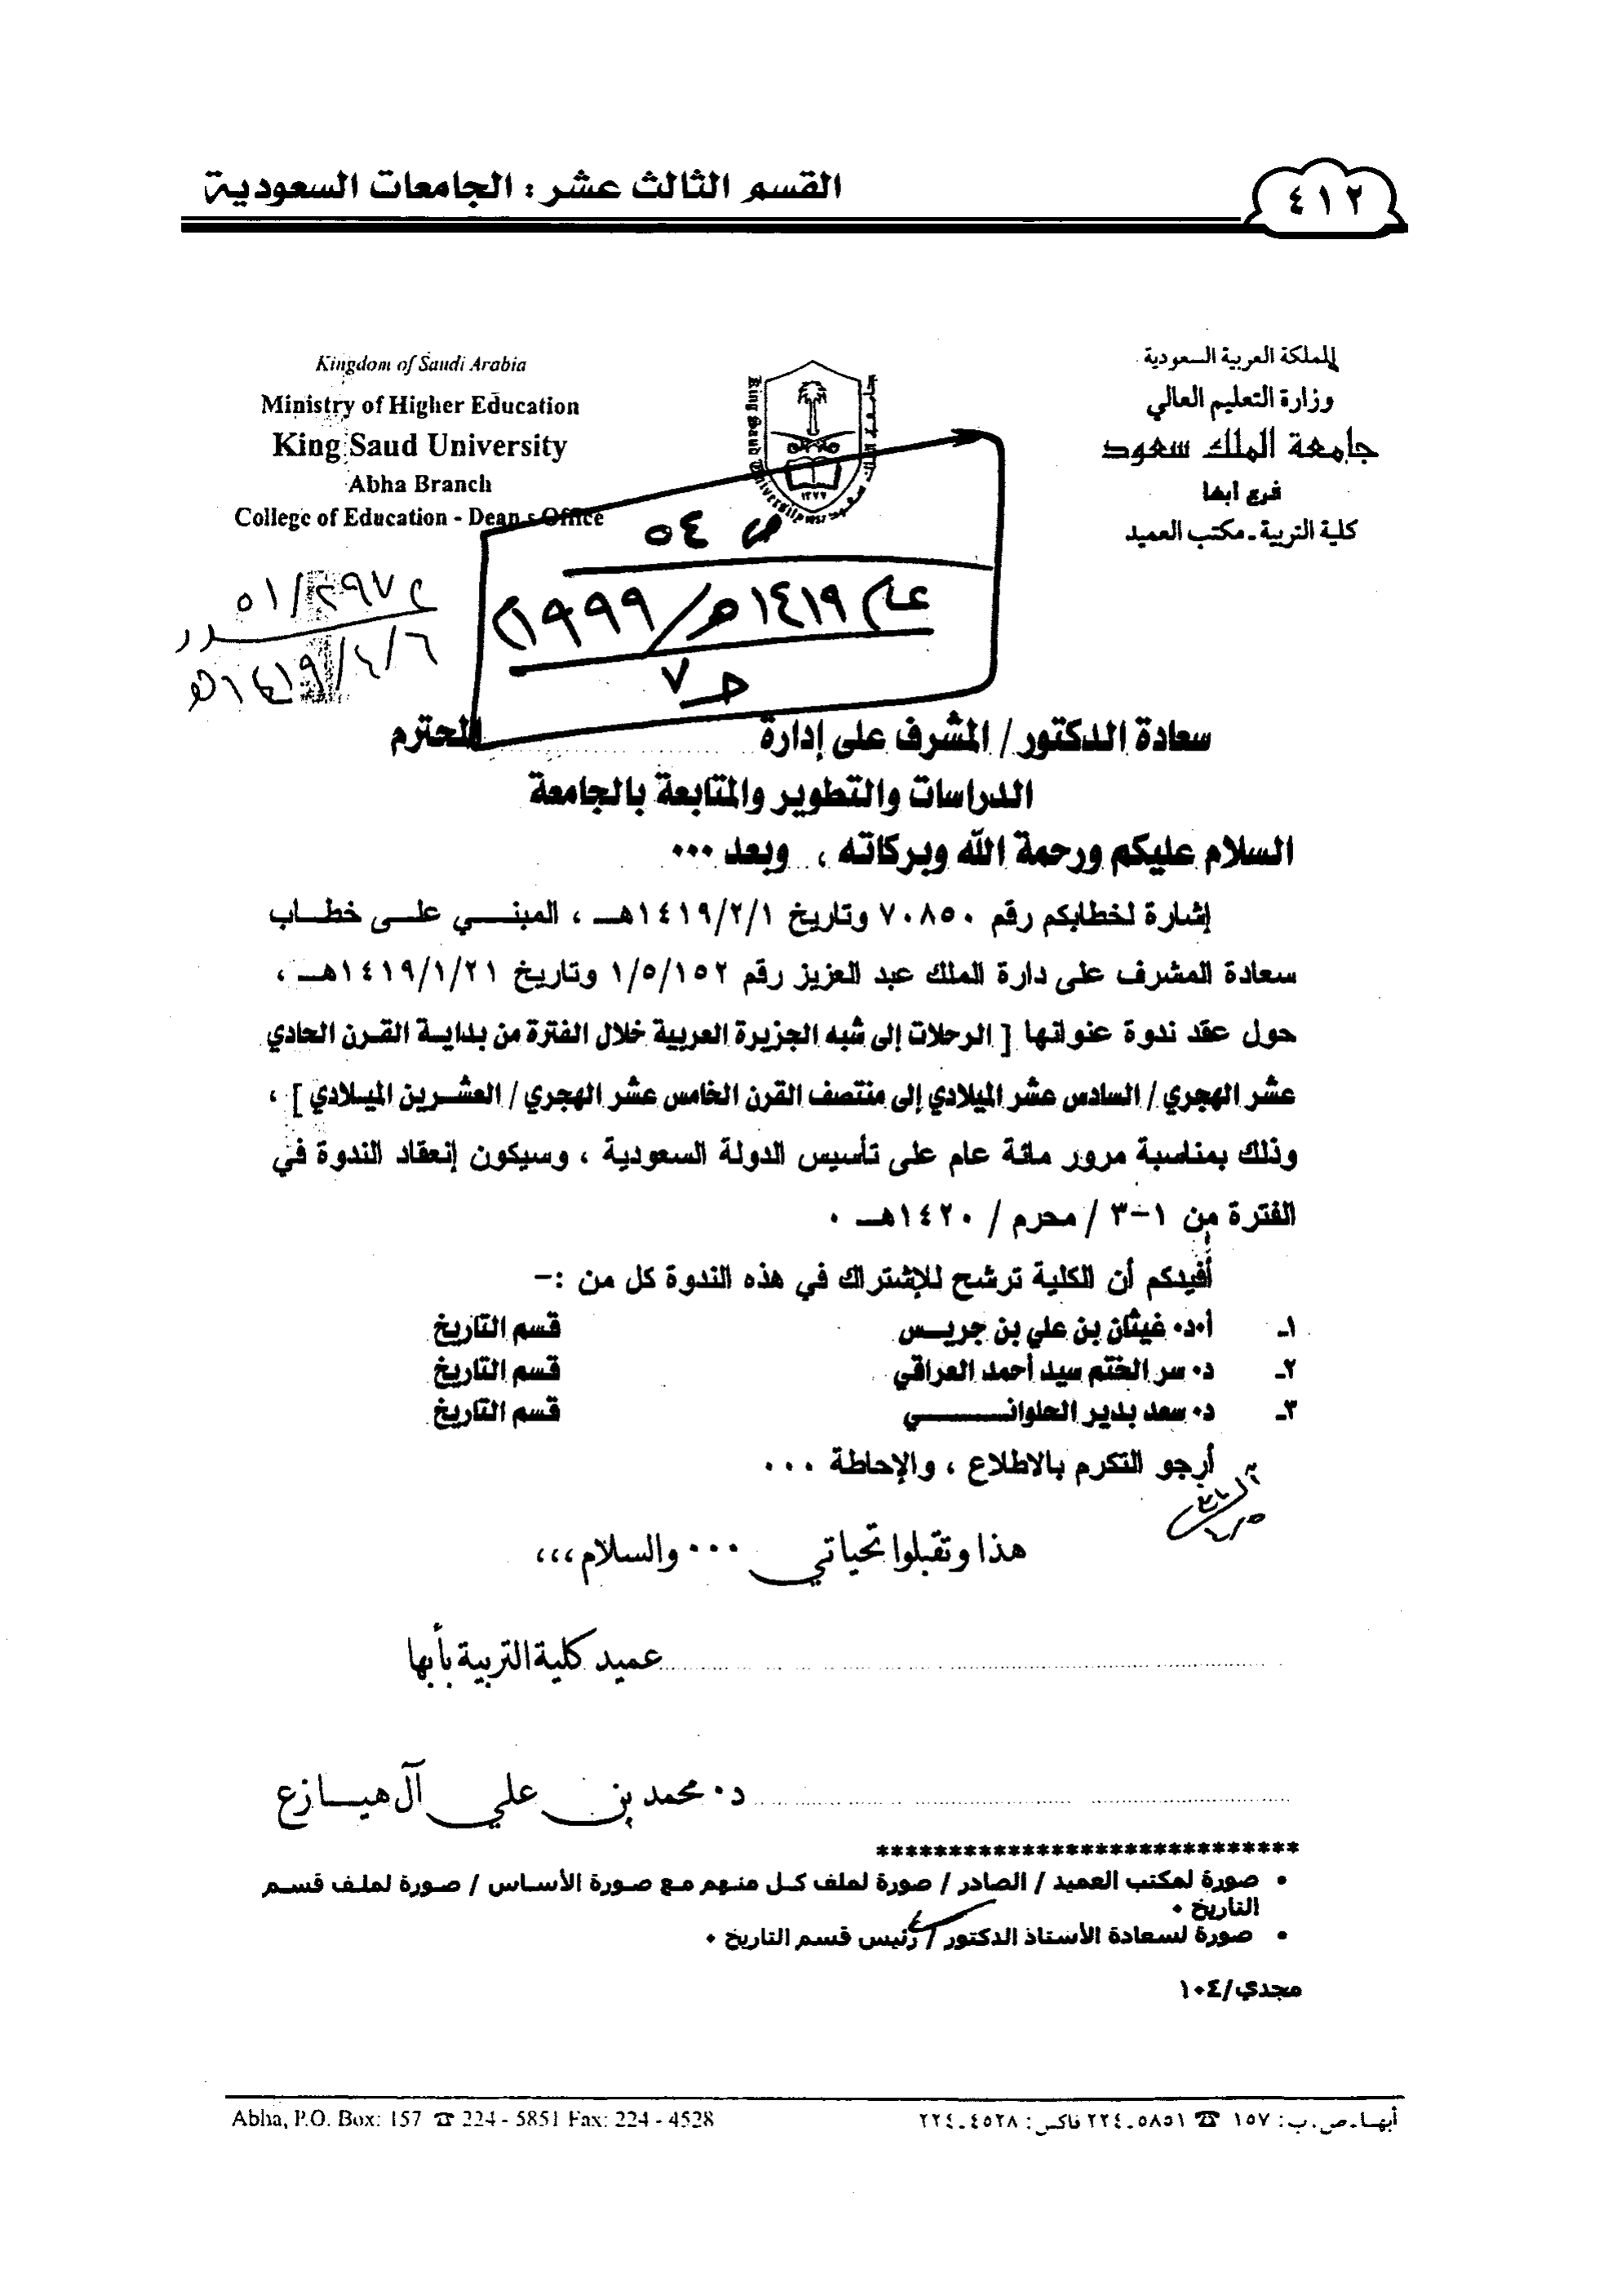 القسم الثالث عشر : الجامعات السعودية
٤١٢
المملكة العربية السعودية
وزارة التعليم العالي
جامعة الملك سعود
فرع ابها
كلية التربية ـ مكتب العميد
Kingdom of Saudi Arabia
Ministry of Higher Education
King Saud University
Abha Branch
College of Education - Dean,s Office
King Saud University 1957
١٣٧٧
ص ٥٤
عام ١٤١٩هـ/١٩٩٩م
جـ٧
١٤١٩/٤/٦هـ
سعادة الدكتور / المشرف على إدارة المحترم
الدراسات والتطوير والمتابعة بالجامعة
السلام عليكم ورحمة الله وبركاته ، وبعد ...
إشارة لخطابكم رقم ٧٠٨٥٠ وتاريخ ١٤١٩/٢/١هـ ، المبني على خطاب
سعادة المشرف على دارة الملك عبد العزيز رقم ١/٥/١٥٢ وتاريخ ١٤١٩/١/٢١هـ ،
حول عقد ندوة عنوانها [ الرحلات إلى شبه الجزيرة العربية خلال الفترة من بداية القرن الحادي
عشر الهجري / السادس عشر الميلادي إلى منتصف القرن الخامس عشر الهجري / العشرين الميلادي ] ،
وذلك بمناسبة مرور مائة عام على تأسيس الدولة السعودية ، وسيكون إنعقاد الندوة في
الفترة من ١-٣ / محرم / ١٤٢٠هـ .
أفيدكم أن الكلية ترشح للإشتراك في هذه الندوة كل من :-
١ـ أ.د. غيثان بن علي بن جريس قسم التاريخ
٢ـ د. سر الختم سيد أحمد العراقي قسم التاريخ
٣ـ د. سعد بدير الحلواني قسم التاريخ
أرجو التكرم بالاطلاع ، والإحاطة ...
هذا وتقبلوا تحياتي ... والسلام ،،،
عميد كلية التربية بأبها
د. محمد بن علي آل هيازع
*****************************
• صورة لمكتب العميد / الصادر / صورة لملف كل منهم مع صورة الأساس / صورة لملف قسم
التاريخ .
• صورة لسعادة الأستاذ الدكتور / رئيس قسم التاريخ .
مجدي/١٠٤
Abha, P.O. Box: 157 ☎ 224 - 5851 Fax: 224 - 4528
أبهـا ـ ص . ب : ١٥٧ ☎ ٥٨٥١ ـ ٢٢٤ فاكس : ٤٥٢٨ ـ ٢٢٤